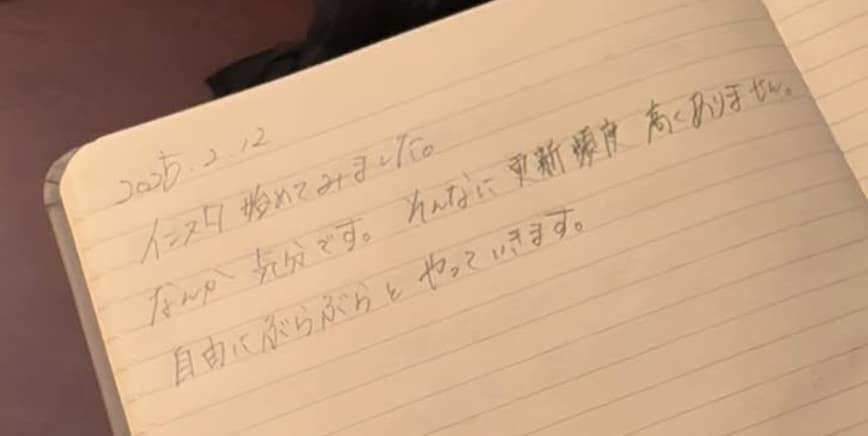 2025.2.12
インスタ始めてみました。
なんか気分です。そんなに更新頻度高くありません。
自由にぶらぶらとやっていきます。